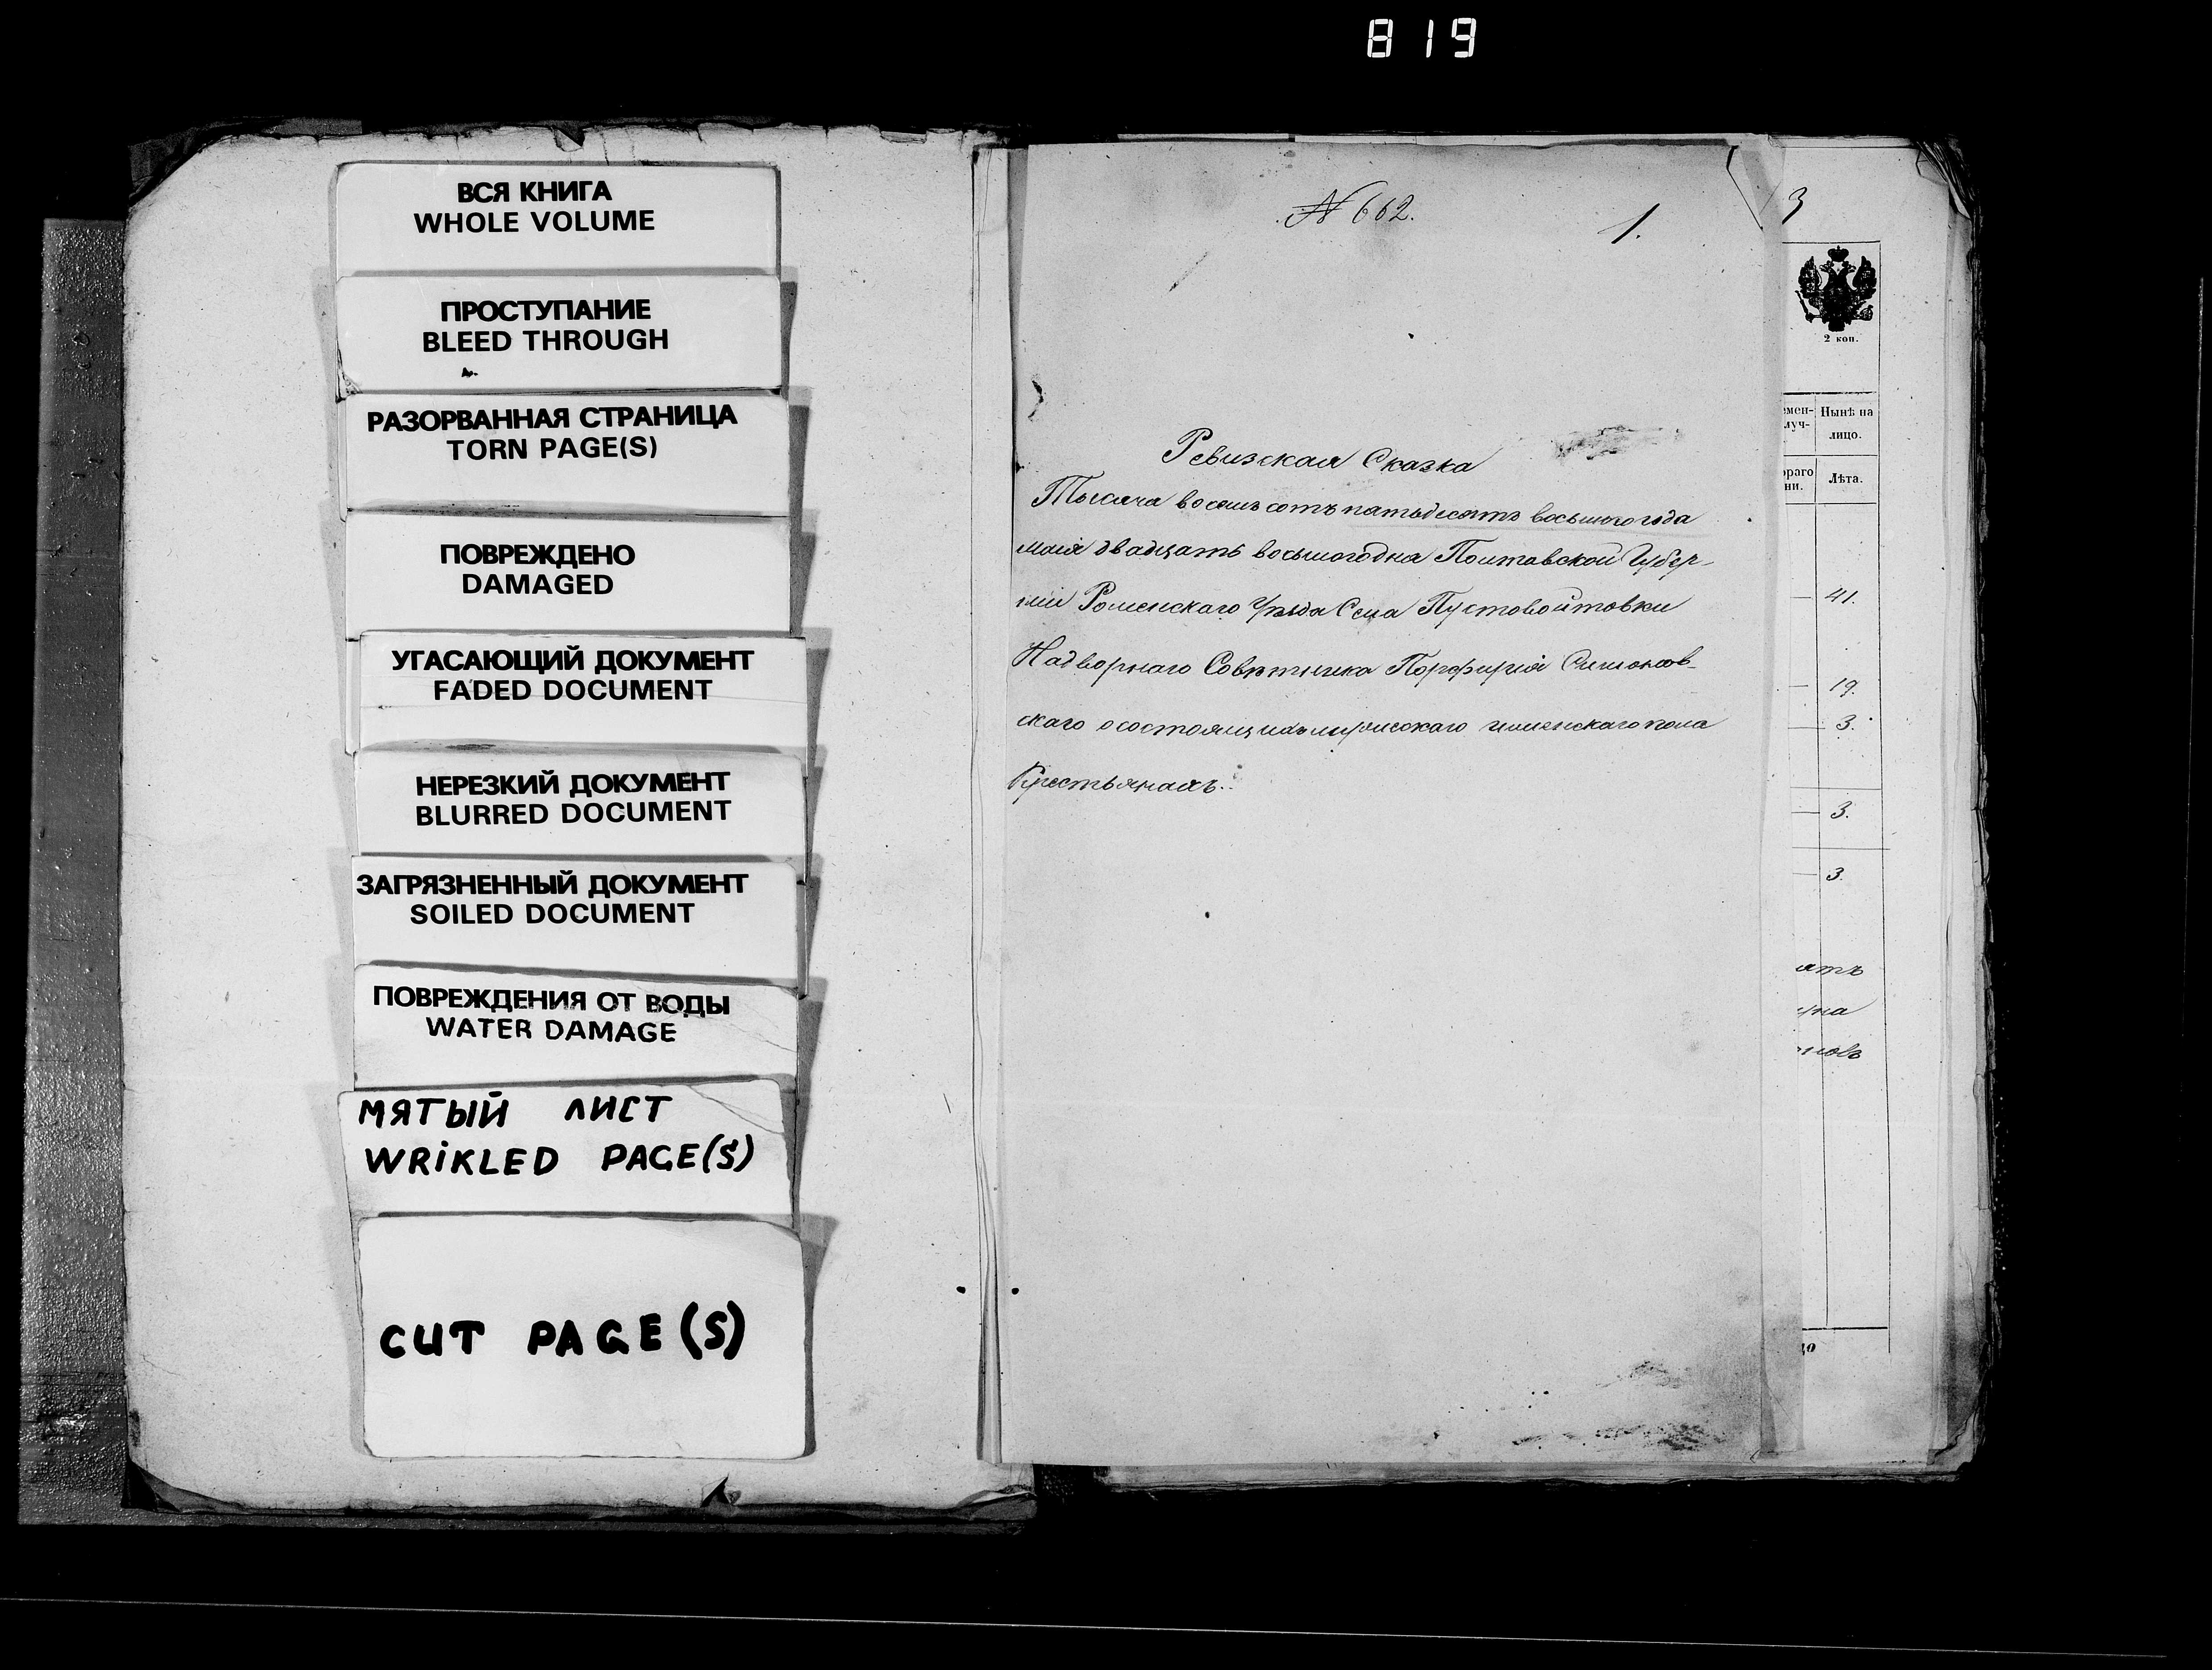 819
ВСЯ КНИГА
WHOLE VOLUME
ПРОСТУПАНИЕ
BLEED THROUGH
РАЗОРВАННАЯ СТРАНИЦА
TORN PAGE(S)
ПОВРЕЖДЕНО
DAMAGED
УГАСАЮЩИЙ ДОКУМЕНТ
FADED DOCUMENT
НЕРЕЗКИЙ ДОКУМЕНТ
BLURRED DOCUMENT
ЗАГРЯЗНЕННЫЙ ДОКУМЕНТ
SOILED DOCUMENT
ПОВРЕЖДЕНИЯ ОТ ВОДЫ
WATER DAMAGE
МЯТЫЙ ЛИСТ
WRiKLED PAGE(S)
CUT PAGE(S)
№ 662.
1.
Ревизская Сказка
Тысяча восемь сотъ пятьдесятъ восьмого года
маія двадцать восьмого дня Полтавской Губер-
ніи Роменскаго Уѣзда Села Пустовойтовки
Надворнаго Совѣтника Порфирія Симонов-
скаго о состоящихъ мужескаго и женскаго пола
Крестьянахъ.
3
2 коп.
емен-
луч-
Нынѣ на
лицо.
ораго
ни.
Лѣта.
41.
19.
3.
3.
3.
ятъ
новъ